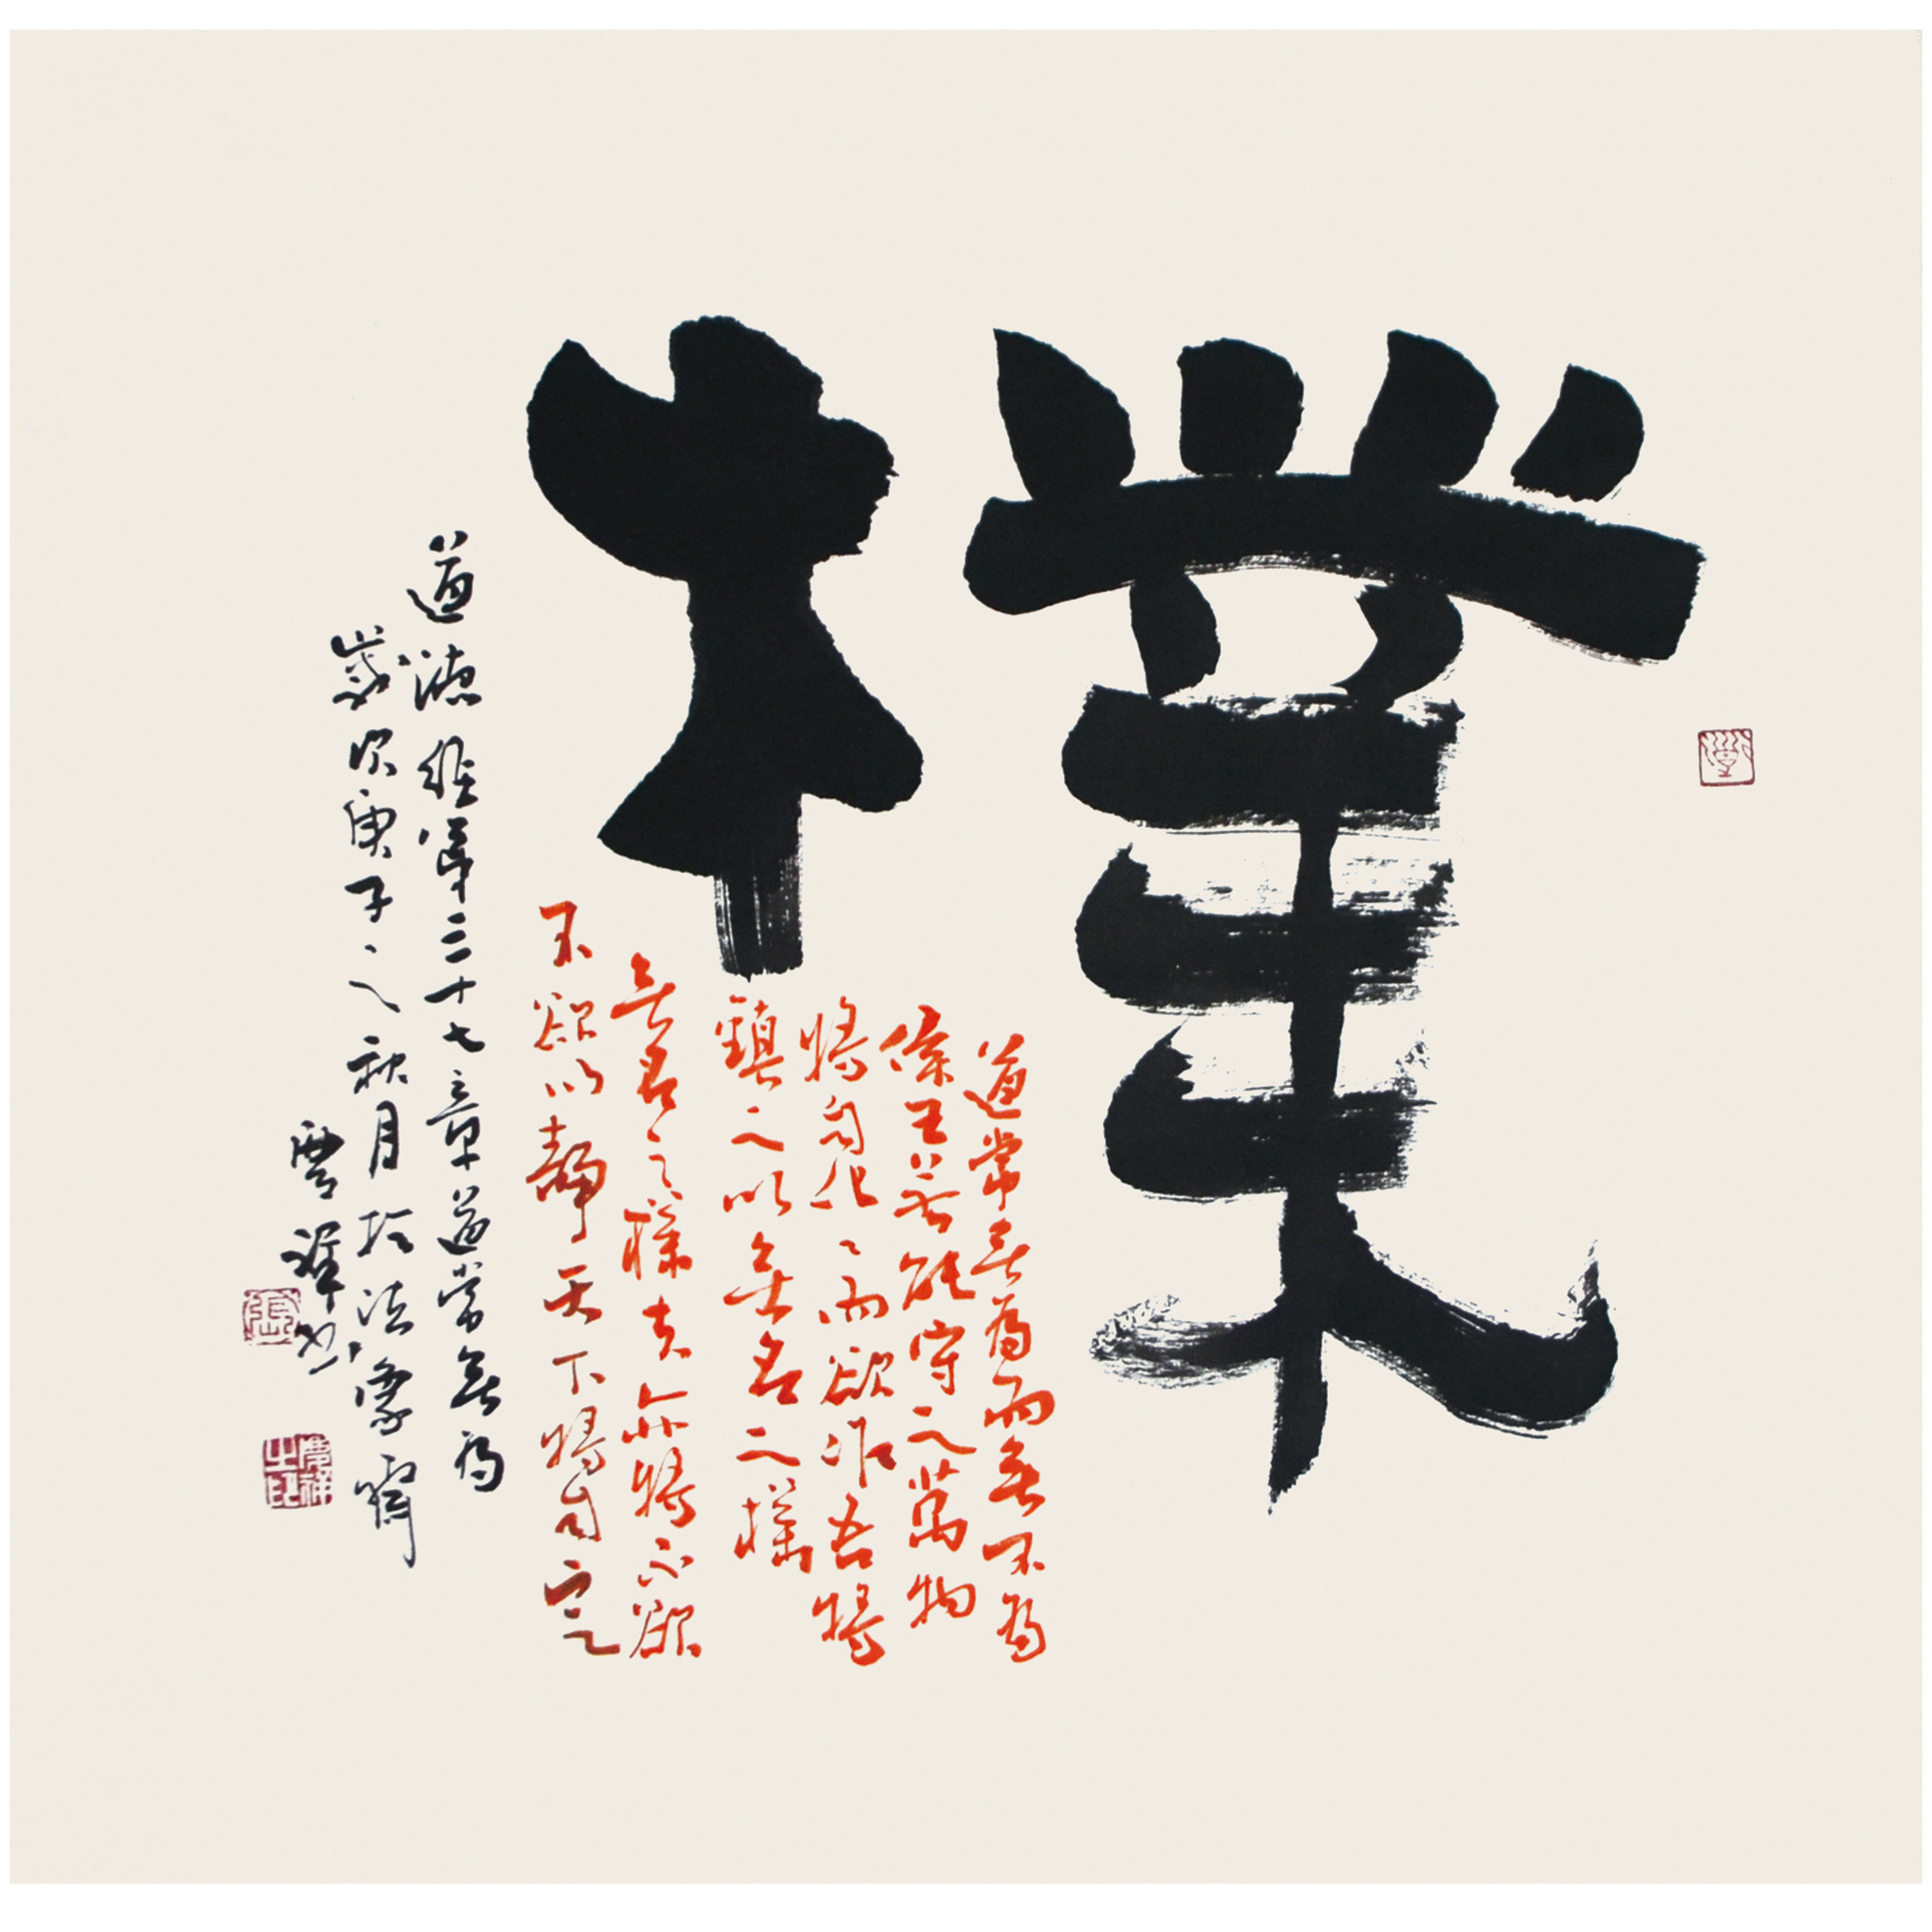 樸
道常無為而無不為
侯王若能守之萬物
將自化〻而欲作吾將
鎮之以無名之樸
無名之樸夫亦將不欲
不欲以靜天下將自定
道德經第三十七章道常無為
歲次庚子之秋月於法象齋
雲 書